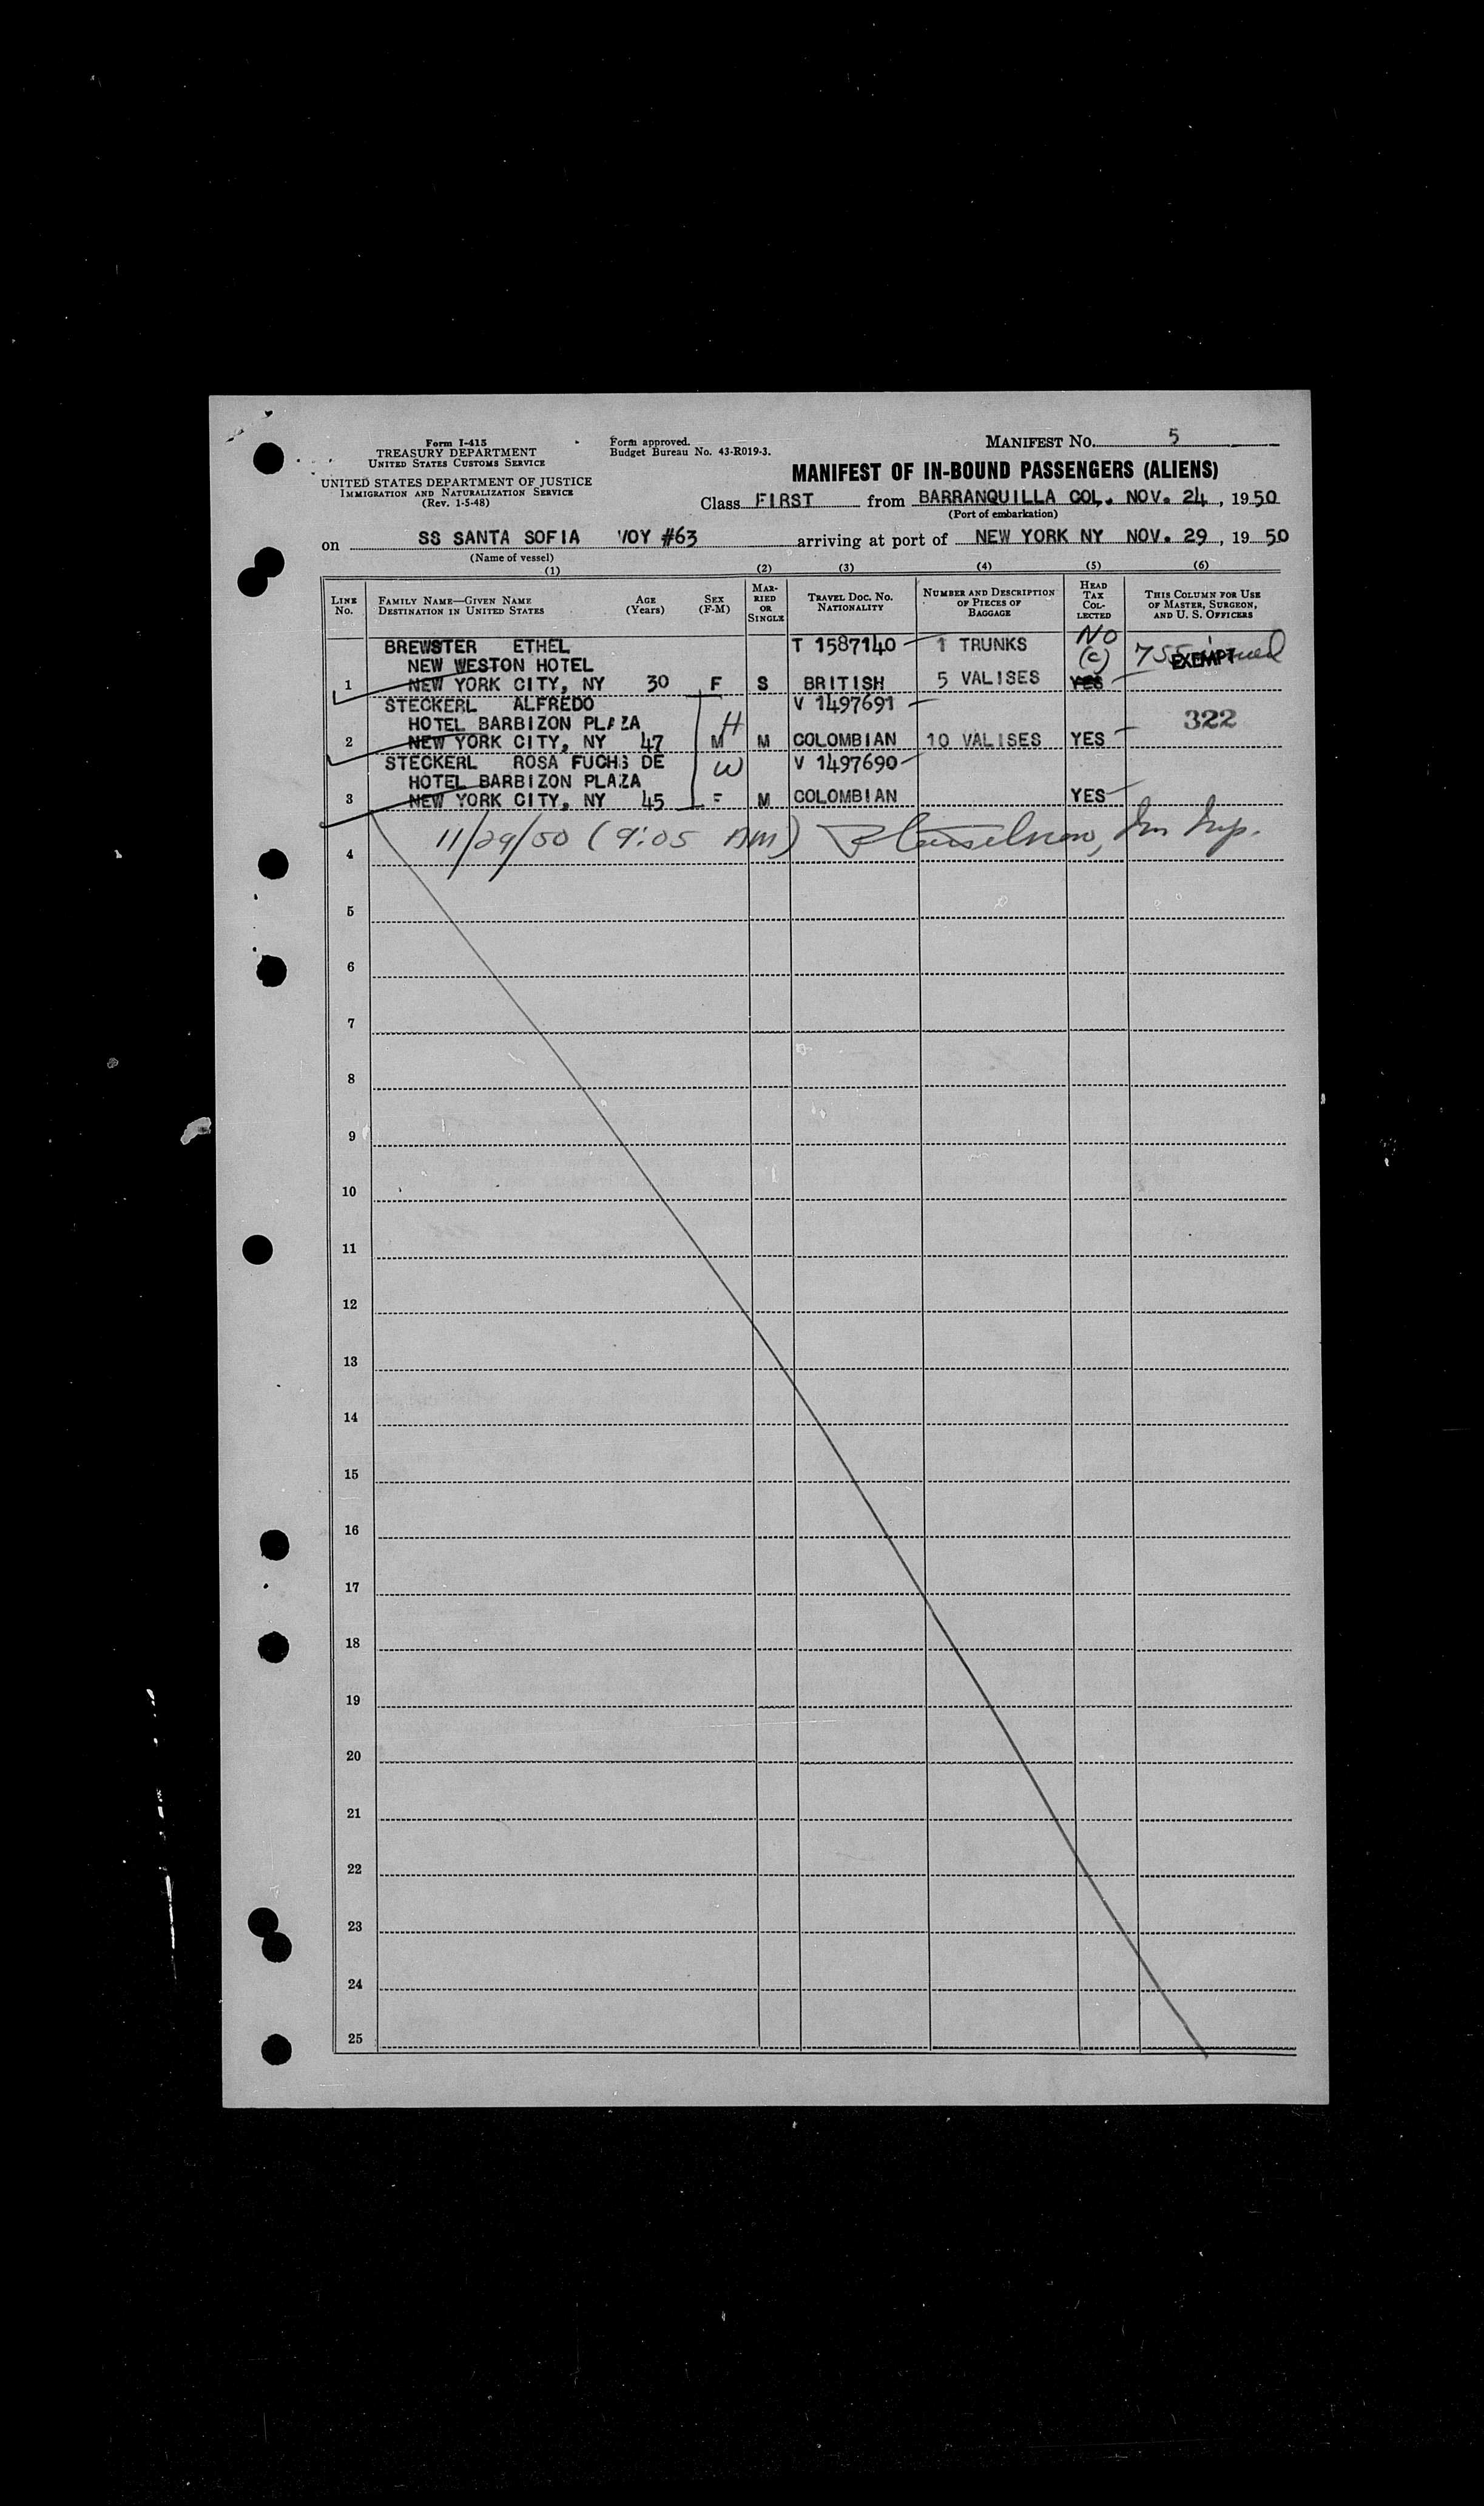 Form I-415
TREASURY DEPARTMENT
UNITED STATES CUSTOMS SERVICE
UNITED STATES DEPARTMENT OF JUSTICE
IMMIGRATION AND NATURALIZATION SERVICE
(Rev. 1-5-48)
Form approved.
Budget Bureau No. 43-R019-3.
MANIFEST No. 5
MANIFEST OF IN-BOUND PASSENGERS (ALIENS)
Class FIRST from BARRANQUILLA COL. NOV. 24, 1950
(Port of embarkation)
on SS SANTA SOFIA VOY #63 arriving at port of NEW YORK NY NOV. 29, 1950
(Name of vessel)
(1) (2) (3) (4) (5) (6)
LINE No. FAMILY NAME—GIVEN NAME DESTINATION IN UNITED STATES AGE (Years) SEX (F-M) MARRIED OR SINGLE TRAVEL DOC. No. NATIONALITY NUMBER AND DESCRIPTION OF PIECES OF BAGGAGE HEAD TAX COLLECTED THIS COLUMN FOR USE OF MASTER, SURGEON, AND U. S. OFFICERS
BREWSTER ETHEL T 1587140 1 TRUNKS NO
NEW WESTON HOTEL (c) EXEMPT
1 NEW YORK CITY, NY 30 F S BRITISH 5 VALISES YES
STECKERL ALFREDO V 1497691
HOTEL BARBIZON PLAZA H 322
2 NEW YORK CITY, NY 47 M M COLOMBIAN 10 VALISES YES
STECKERL ROSA FUCHS DE W V 1497690
HOTEL BARBIZON PLAZA
3 NEW YORK CITY, NY 45 F M COLOMBIAN YES
4 11/29/50 (9:05 AM) Im Insp.
5
6
7
8
9
10
11
12
13
14
15
16
17
18
19
20
21
22
23
24
25